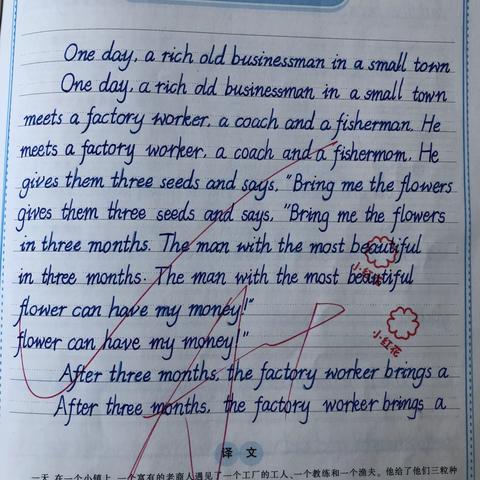 One day, a rich old businessman in a small town
One day, a rich old businessman in a small town
meets a factory worker, a coach and a fisherman. He
meets a factory worker, a coach and a fishermom. He
gives them three seeds and says, "Bring me the flowers
gives them three seeds and says, "Bring me the flowers
in three months. The man with the most beautiful
in three months. The man with the most beautiful
小红花
flower can have my money!"
小红花
flower can have my money!"
After three months, the factory worker brings a
After three months, the factory worker brings a
译文
一天,在一个小镇上,一个富有的老商人遇见了一个工厂的工人、一个教练和一个渔夫。他给了他们三粒种